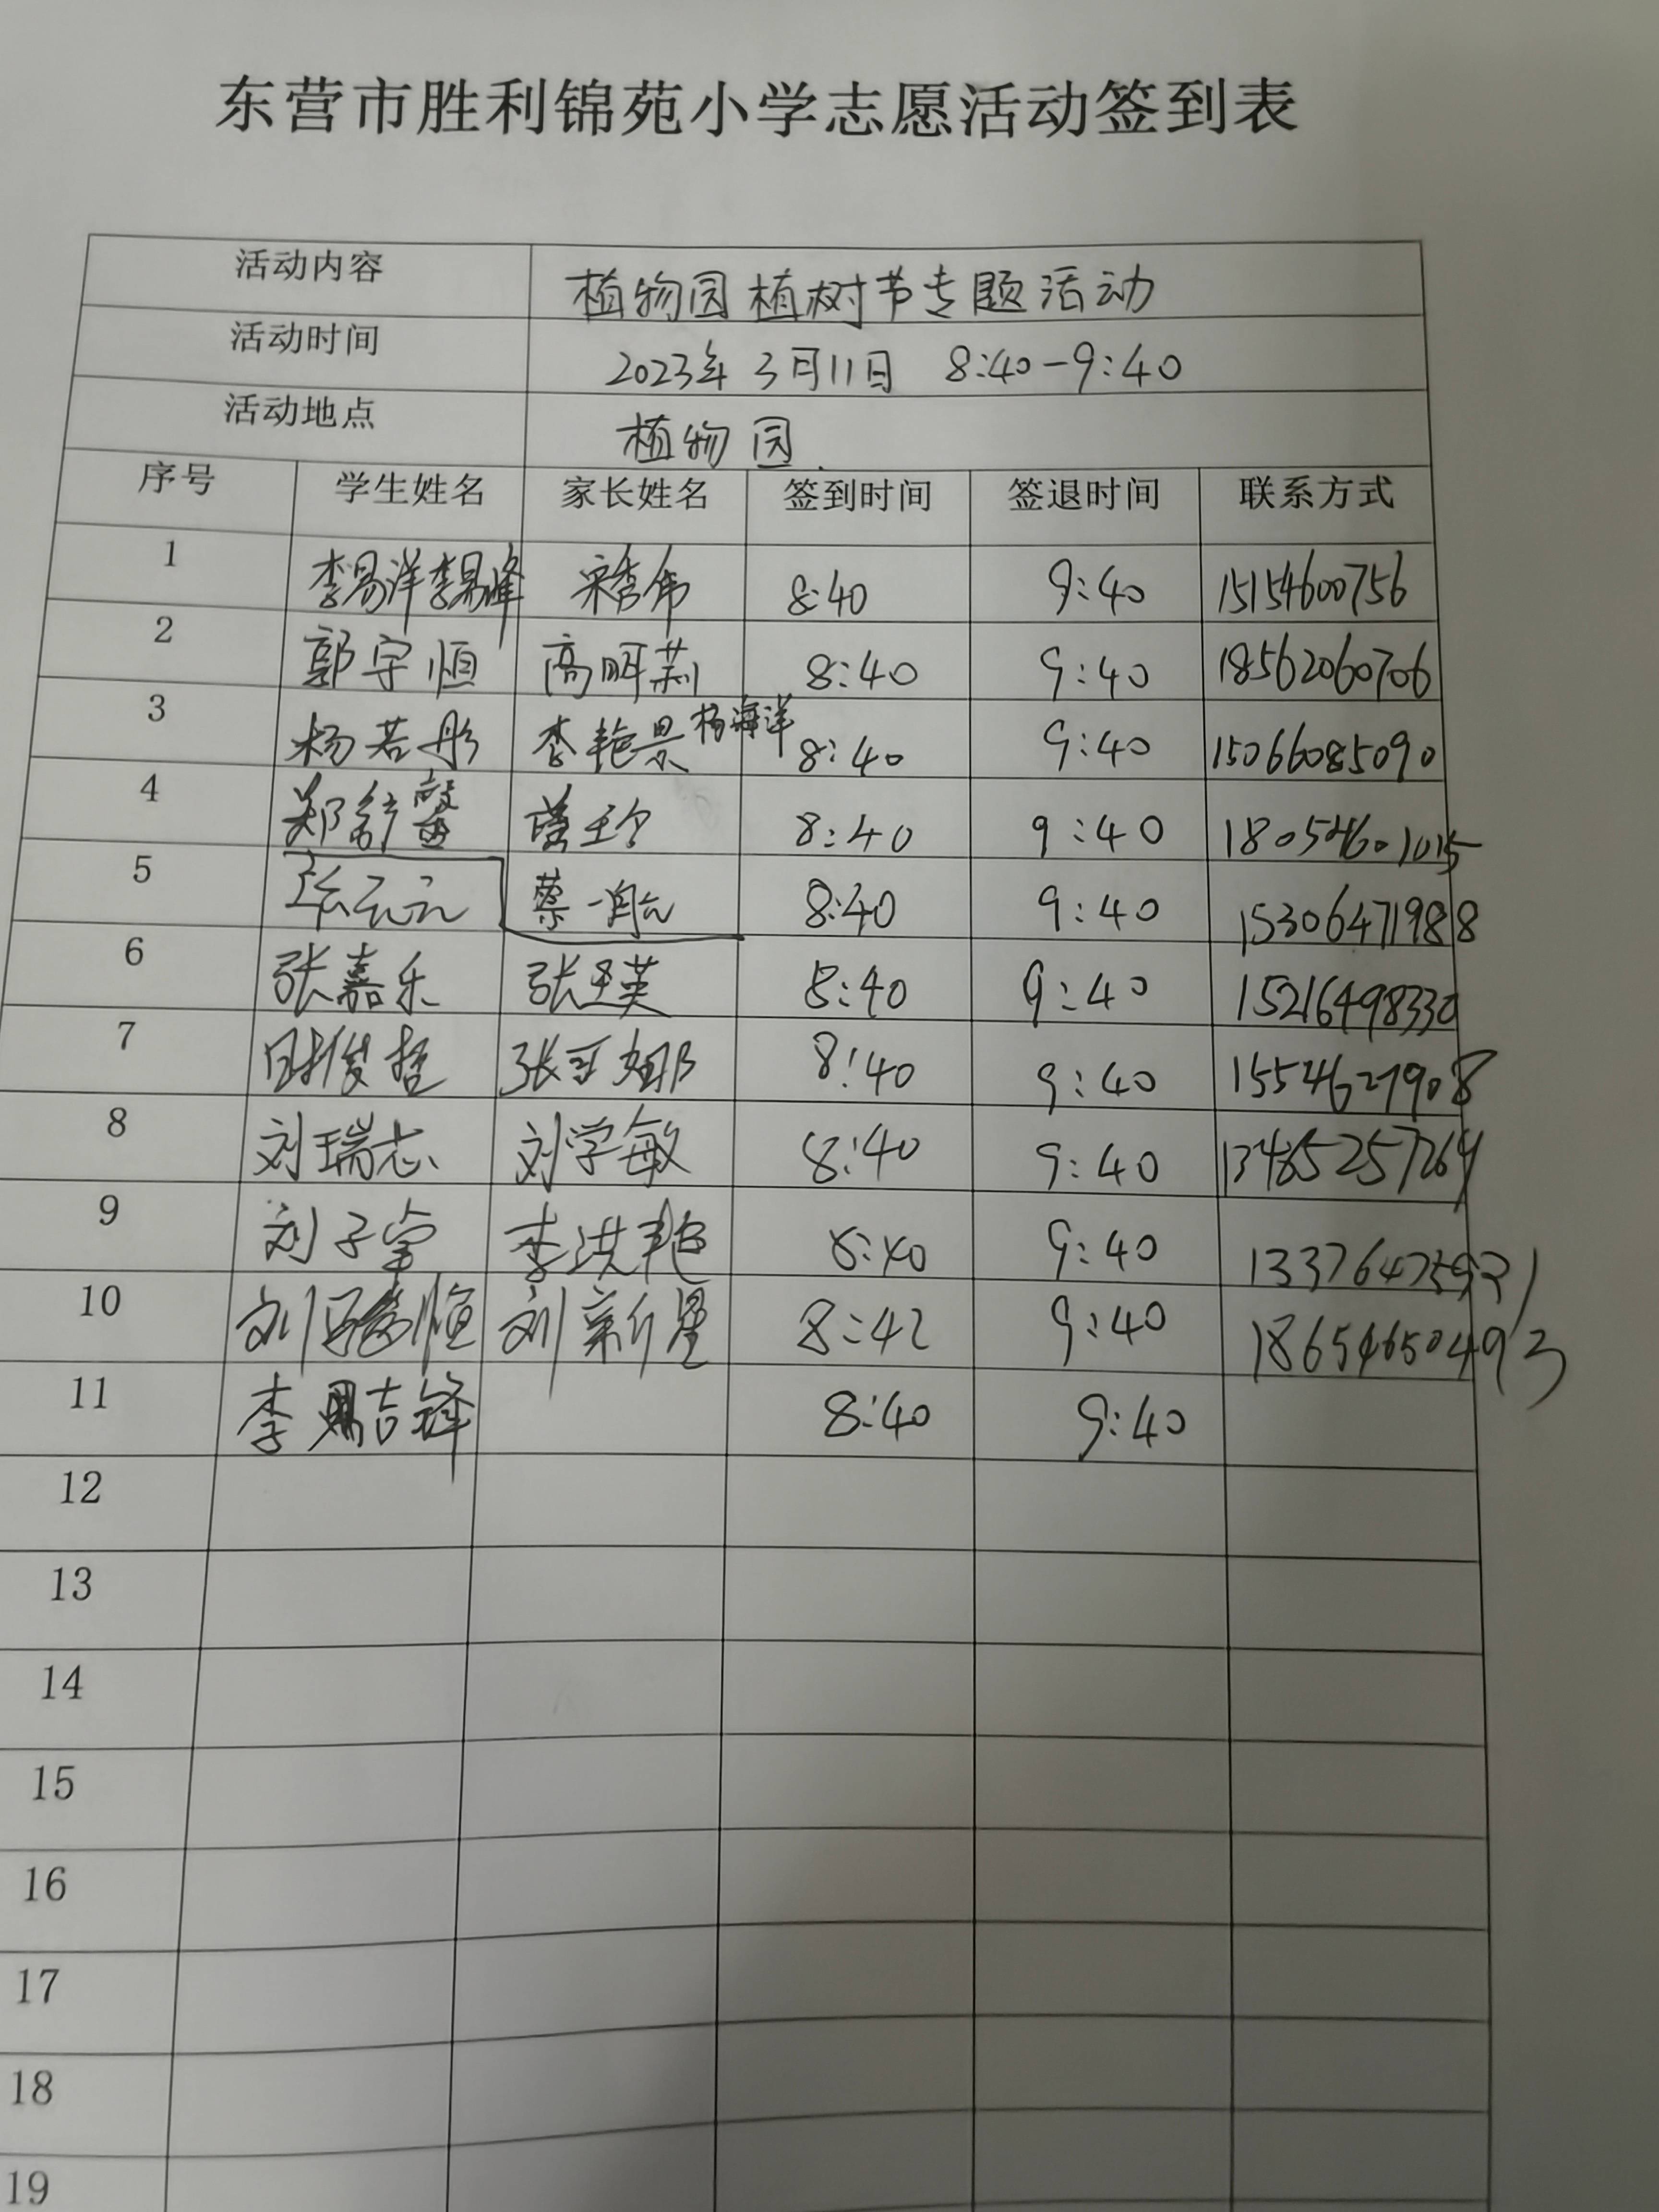 东营市胜利锦苑小学志愿活动签到表
活动内容 植物园植树节专题活动
活动时间 2023年3月11日 8:40-9:40
活动地点 植物园
序号 学生姓名 家长姓名 签到时间 签退时间 联系方式
1 李易洋李易峰 宋秀伟 8:40 9:40 15154600756
2 郭宇恒 高明莉 8:40 9:40 18562060706
3 杨若彤 李艳景 杨海洋 8:40 9:40 15066085090
4 郑舒馨 8:40 9:40 18054601015
5 蔡 8:40 9:40 15306471988
6 张嘉乐 张圣英 8:40 9:40 15216498330
7 俊哲 张 娜 8:40 9:40 15546271908
8 刘瑞志 刘学敏 8:40 9:40 13485257264
9 刘子 李洪艳 8:40 9:40
10 刘 恒 刘新星 8:42 9:40 18654650493
11 李 吉锋 8:40 9:40
12
13
14
15
16
17
18
19